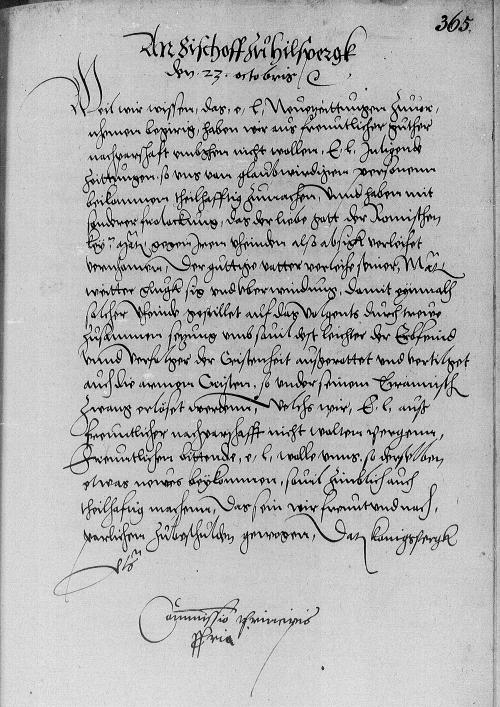 365.
An Bischoff zu Hilspergk
den 23. octobris
Weil wir wissen, das e. l. Neuezeittungen zuuor-
nhemen begirig, haben wir aus freuntlicher guther
nachparschafft umbghen nicht wollen, E. l. Inligende
zeittungen, so uns van glaubwirdigen personenn
beikommen theilhafftig zumachen, Unnd haben mit
sonderer frolackung, das der liebe gott der Romischen
kay: matt: gegen Iren vheinden alsz absigk verleihet
vernhomen, Der guttige vatter verleihe seiner Matt
weitter glugk sig und uberwindung, damit eynmalh
solcher vheinde gestillet auf das volgents durch treue
zusammen setzung umb souil dest leichter der Erbfeind
unnd veruolger der Cristenheit auszgerottet und vertilget
auch die armen Cristen, so under seinem Tirannisch
zwang erlöset werdenn, Welchs wir, E. l. ausz
freuntlicher nachparschafft nicht wolten pergenn,
Freuntlichen bittende, e. l. wolle unns, so derselben
etwas neues beykommen, souil thunlich auch
theilhafftig machenn, Das sein wir freunt und nach-
parlichen zubeschulden gewogen, Dat konigspergk
ut s
Commissio Principis
ppria